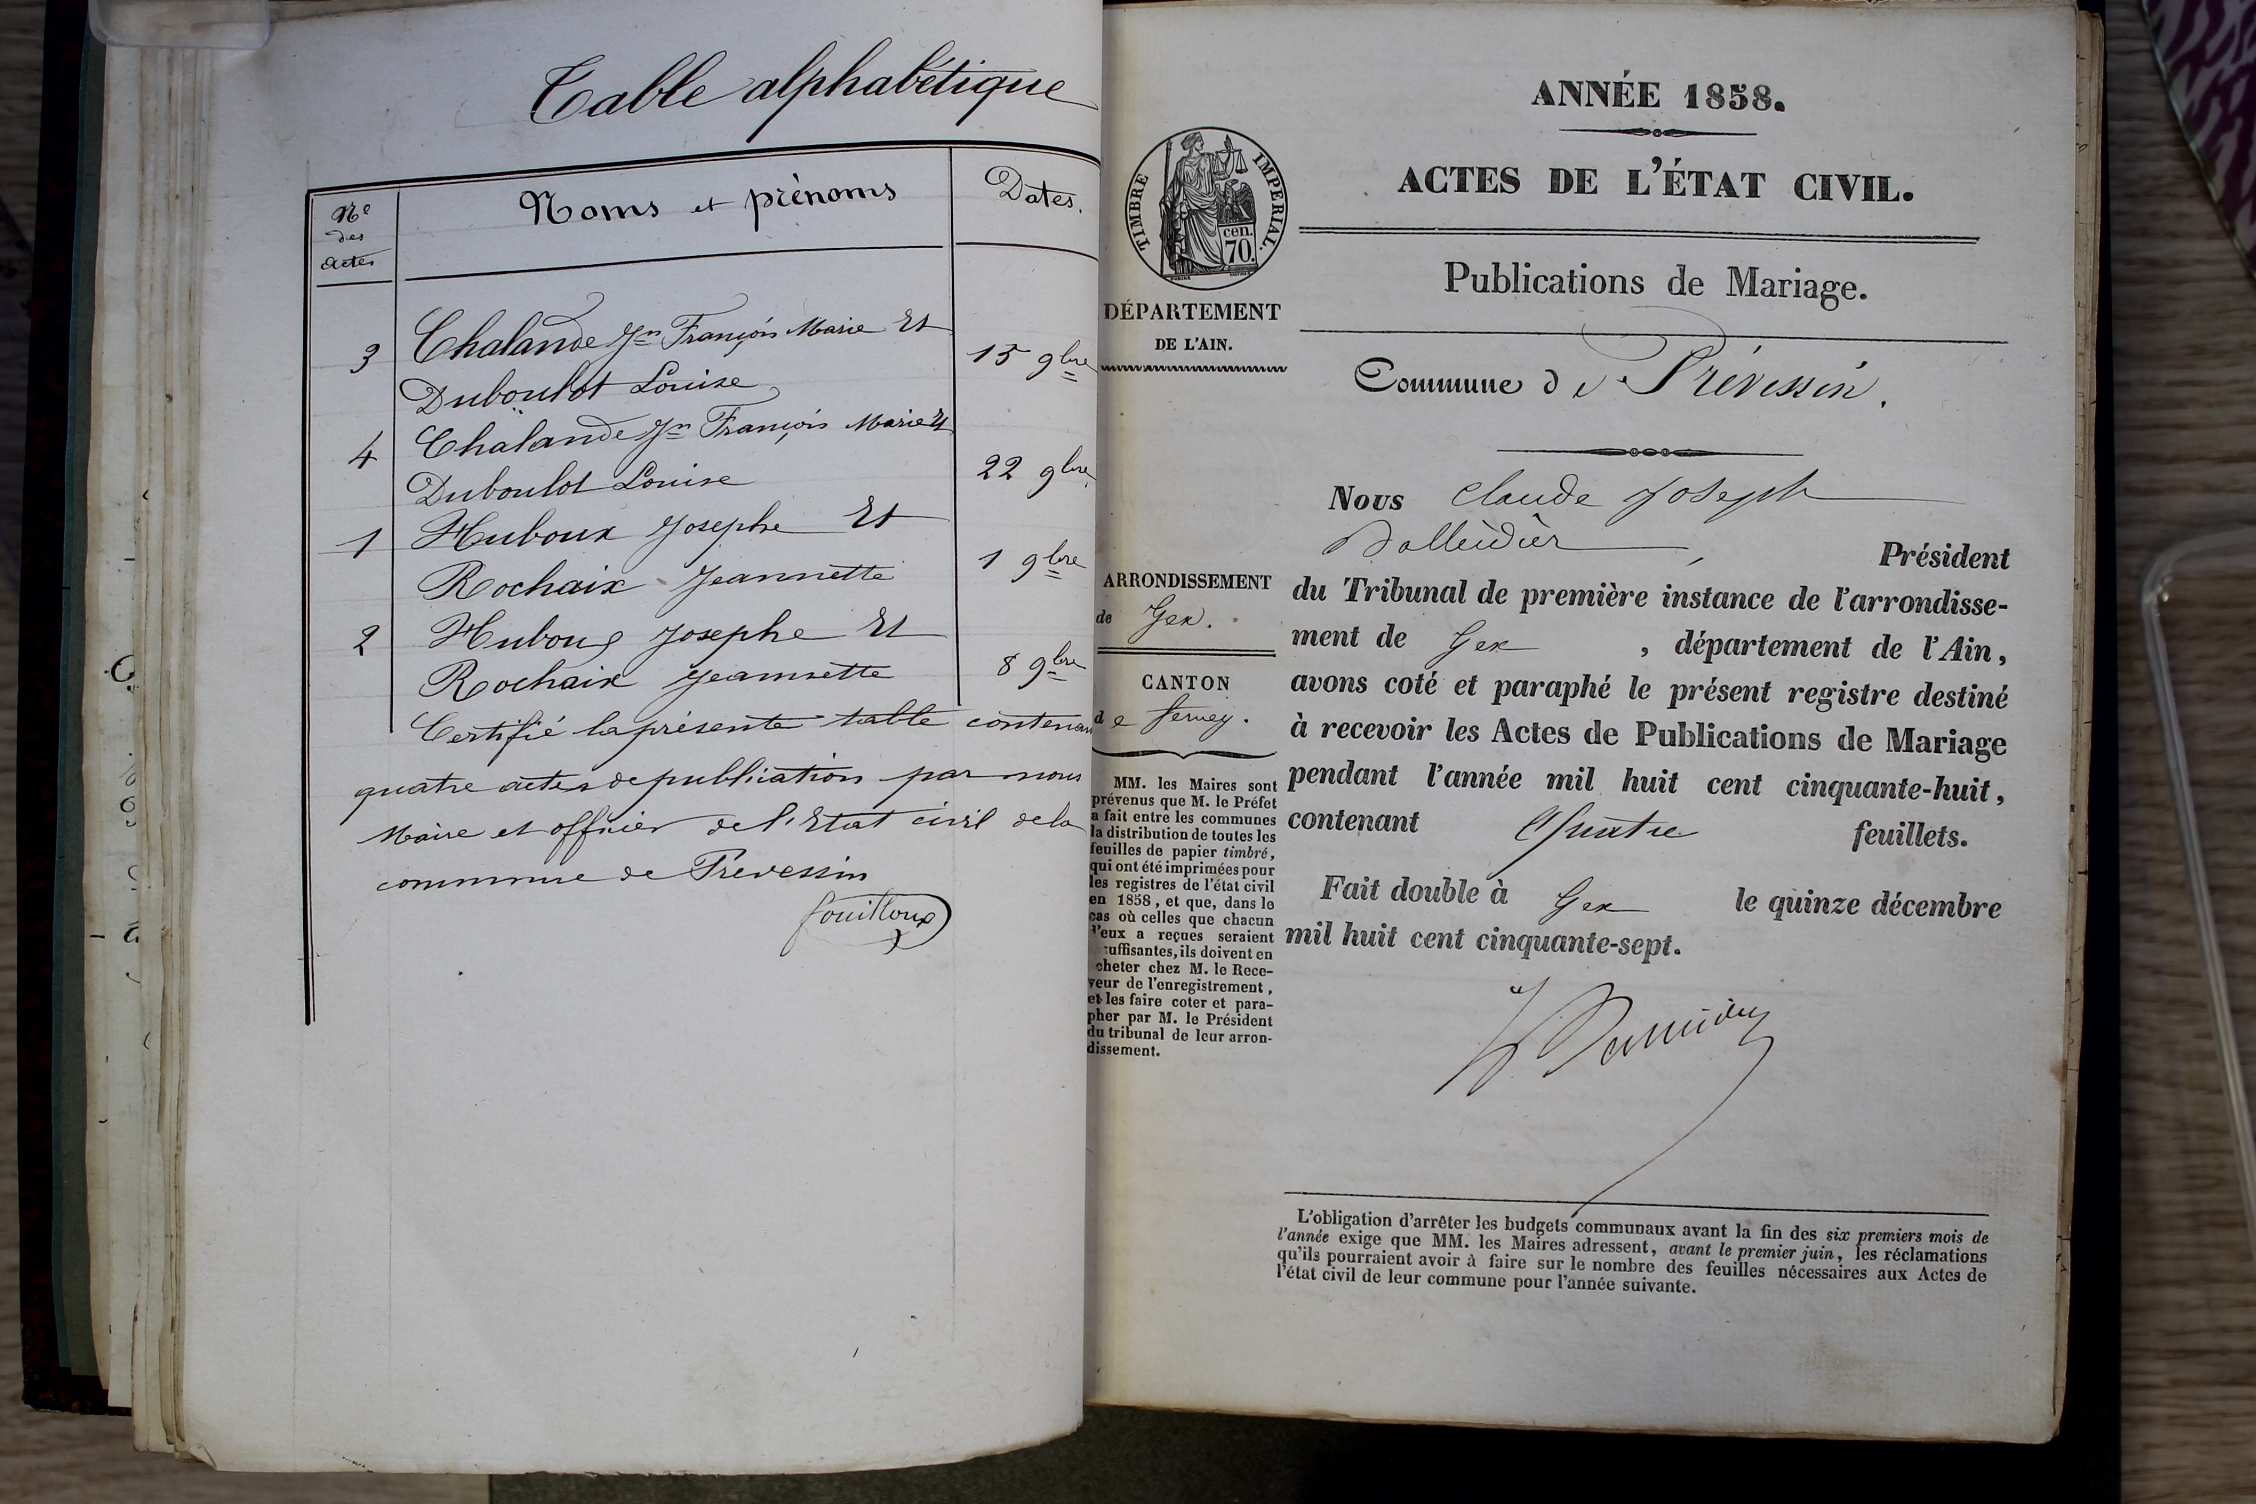 Table alphabétique
Nos des actes
Noms et prénoms
Dates.
3 Chalande Jn François Marie Et
Duboulot Louise 15 9bre
4 Chalande Jn François Marie Et
Duboulot Louise 22 9bre
1 Huboux Josephe Et
Rochaix Jeannette 1 9bre
2 Huboux Josephe Et
Rochaix Jeannette 8 9bre
Certifié la présente table contenant
quatre actes de publication par nous
Maire et officier de l'Etat civil de la
commune de Prevessin
fouilloux
ANNÉE 1858.
ACTES DE L'ÉTAT CIVIL.
Publications de Mariage.
Commune de Prévessin.
TIMBRE IMPERIAL.
cen.
70.
DÉPARTEMENT
DE L'AIN.
ARRONDISSEMENT
de Gex.
CANTON
de ferney.
MM. les Maires sont
prévenus que M. le Préfet
a fait entre les communes
la distribution de toutes les
feuilles de papier timbré,
qui ont été imprimées pour
les registres de l'état civil
en 1858, et que, dans le
cas où celles que chacun
d'eux a reçues seraient
suffisantes, ils doivent en
cheter chez M. le Rece-
veur de l'enregistrement,
et les faire coter et para-
pher par M. le Président
du tribunal de leur arron-
dissement.
Nous Claude Joseph
, Président
du Tribunal de première instance de l'arrondisse-
ment de Gex , département de l'Ain,
avons coté et paraphé le présent registre destiné
à recevoir les Actes de Publications de Mariage
pendant l'année mil huit cent cinquante-huit,
contenant Quatre feuillets.
Fait double à Gex le quinze décembre
mil huit cent cinquante-sept.
L'obligation d'arrêter les budgets communaux avant la fin des six premiers mois de
l'année exige que MM. les Maires adressent, avant le premier juin, les réclamations
qu'ils pourraient avoir à faire sur le nombre des feuilles nécessaires aux Actes de
l'état civil de leur commune pour l'année suivante.